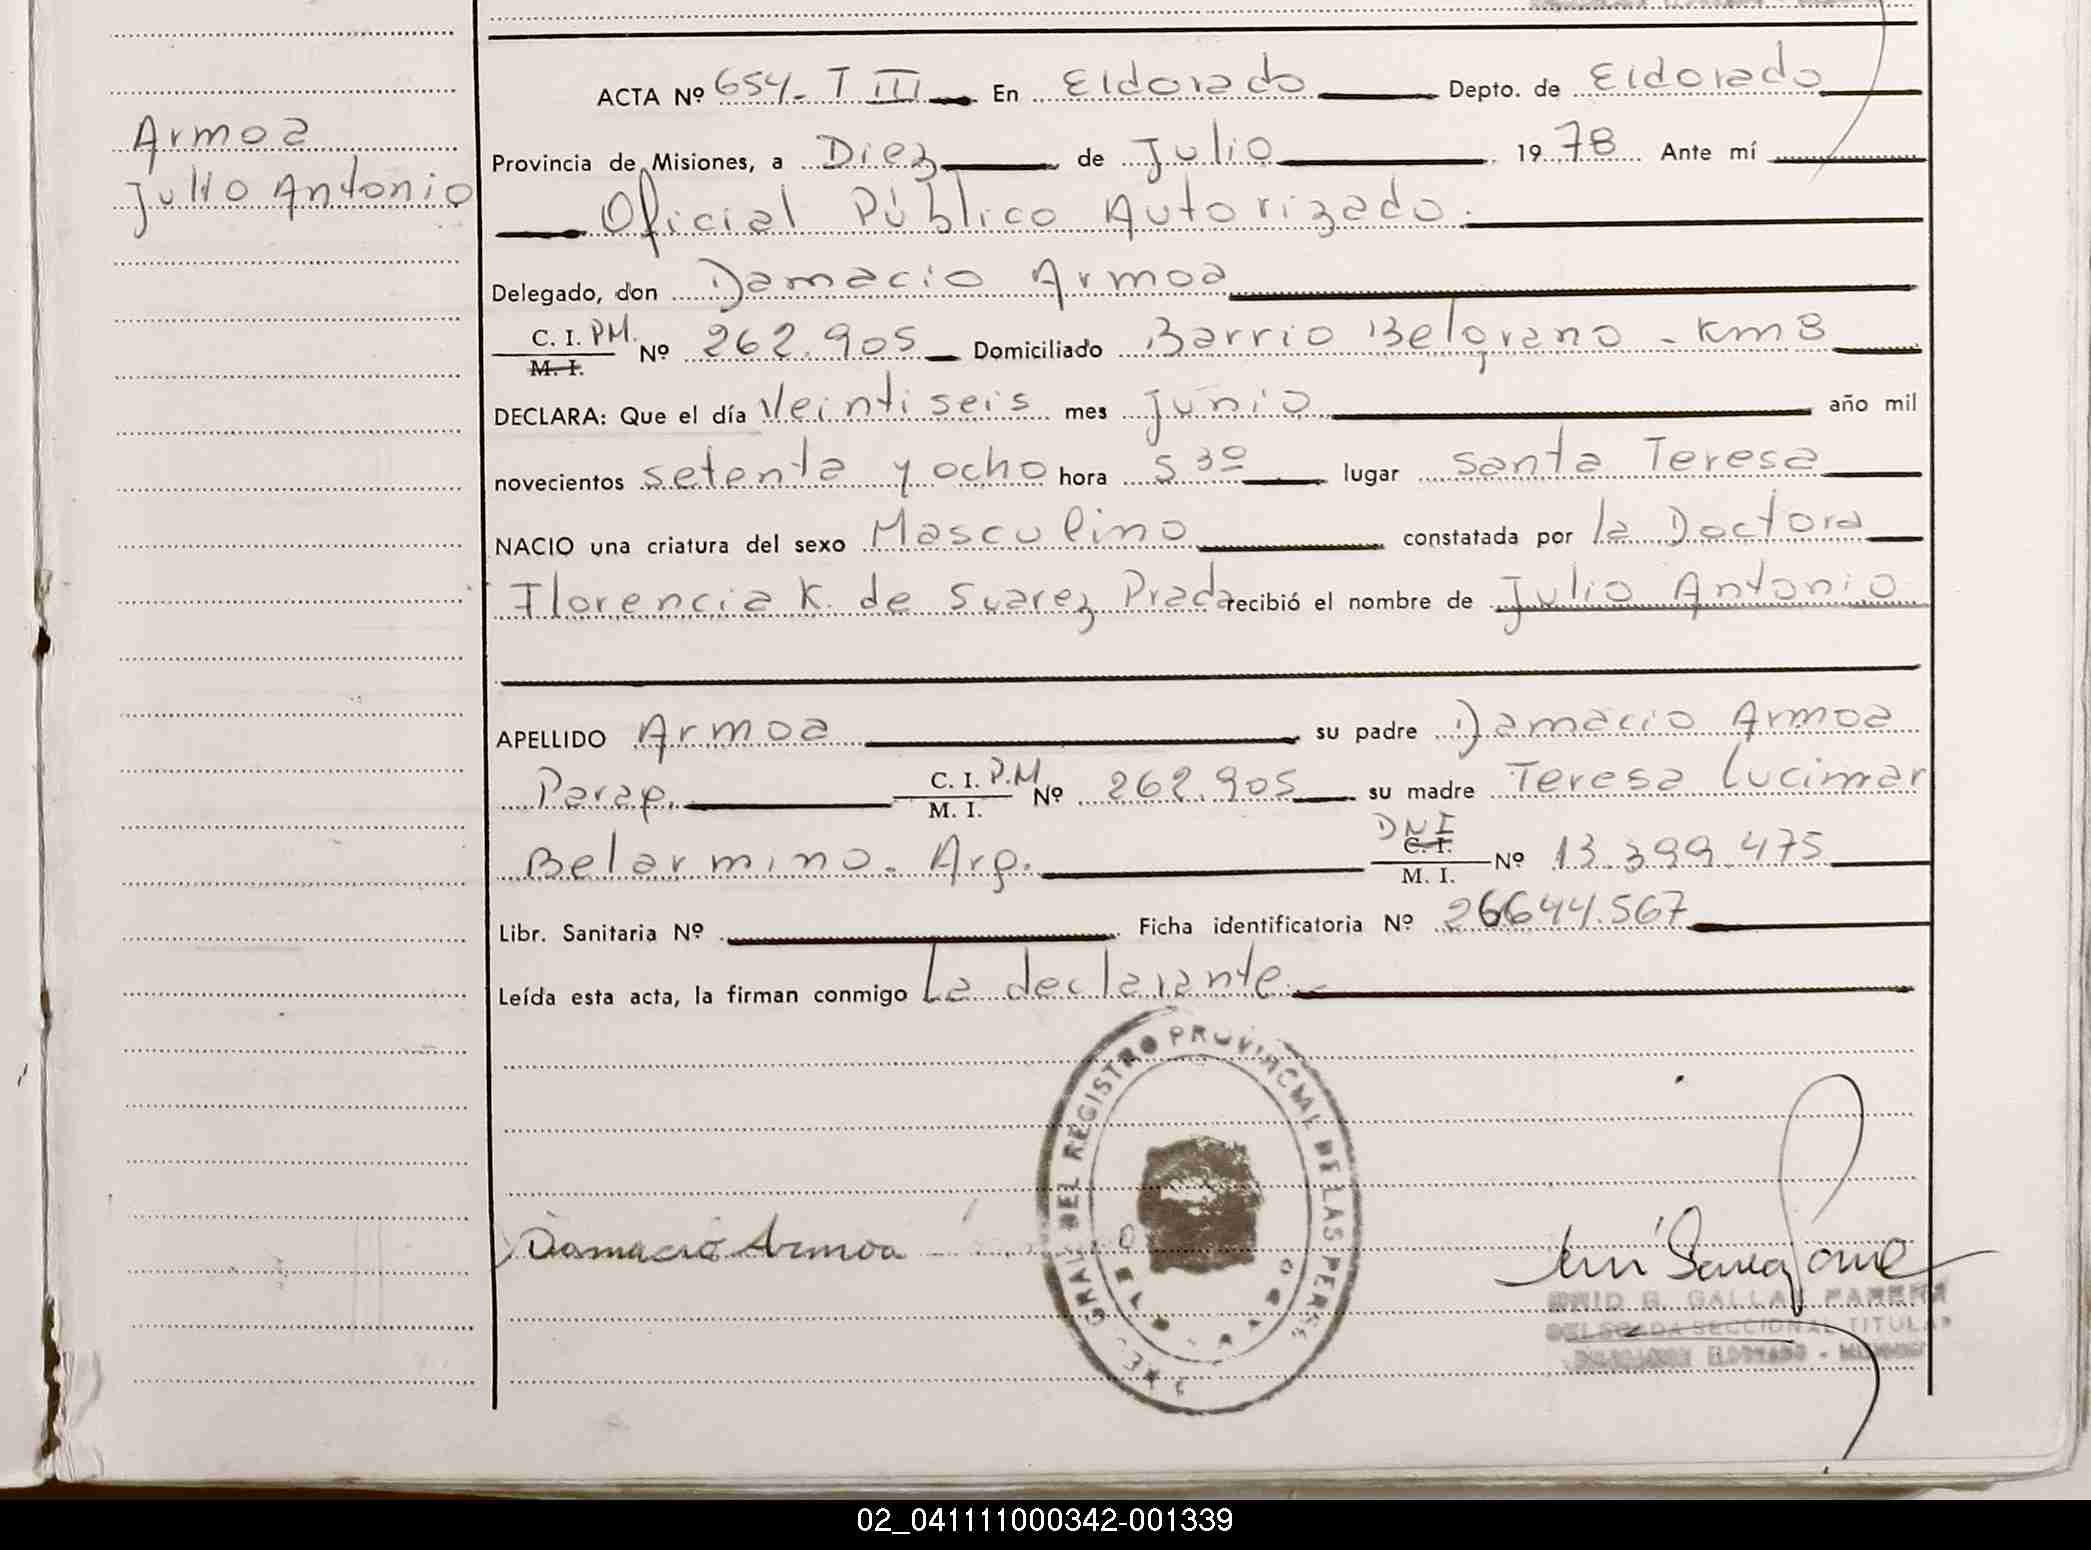 Armoa
Julio Antonio
ACTA Nº 654- T III En Eldorado Depto. de Eldorado
Provincia de Misiones, a Diez de Julio 1978 Ante mí
Oficial Público Autorizado.
Delegado, don Damacio Armoa
C. I. PM.
M. I. Nº 262.905 Domiciliado Barrio Belgrano - Km 8
DECLARA: Que el día Veintiseis mes junio año mil
novecientos setenta y ocho hora 5 30 lugar Santa Teresa
NACIO una criatura del sexo Masculino constatada por la Doctora
Florencia K. de Suarez Prada recibió el nombre de Julio Antonio
APELLIDO Armoa su padre Damacio Armoa
Parag. C. I. P.M
M. I. Nº 262.905 su madre Teresa Lucimar
Belarmino. Arg. DNI
C. I.
M. I. Nº 13.399.475
Libr. Sanitaria Nº Ficha identificatoria Nº 26644.567
Leída esta acta, la firman conmigo La declarante.-
GRAL DEL REGISTRO PROVINCIAL DE LAS PERS
Damacio Armoa
GALLA PARERA
DELEGADA SECCIONAL TITULAR
ELDORADO -
02_041111000342-001339